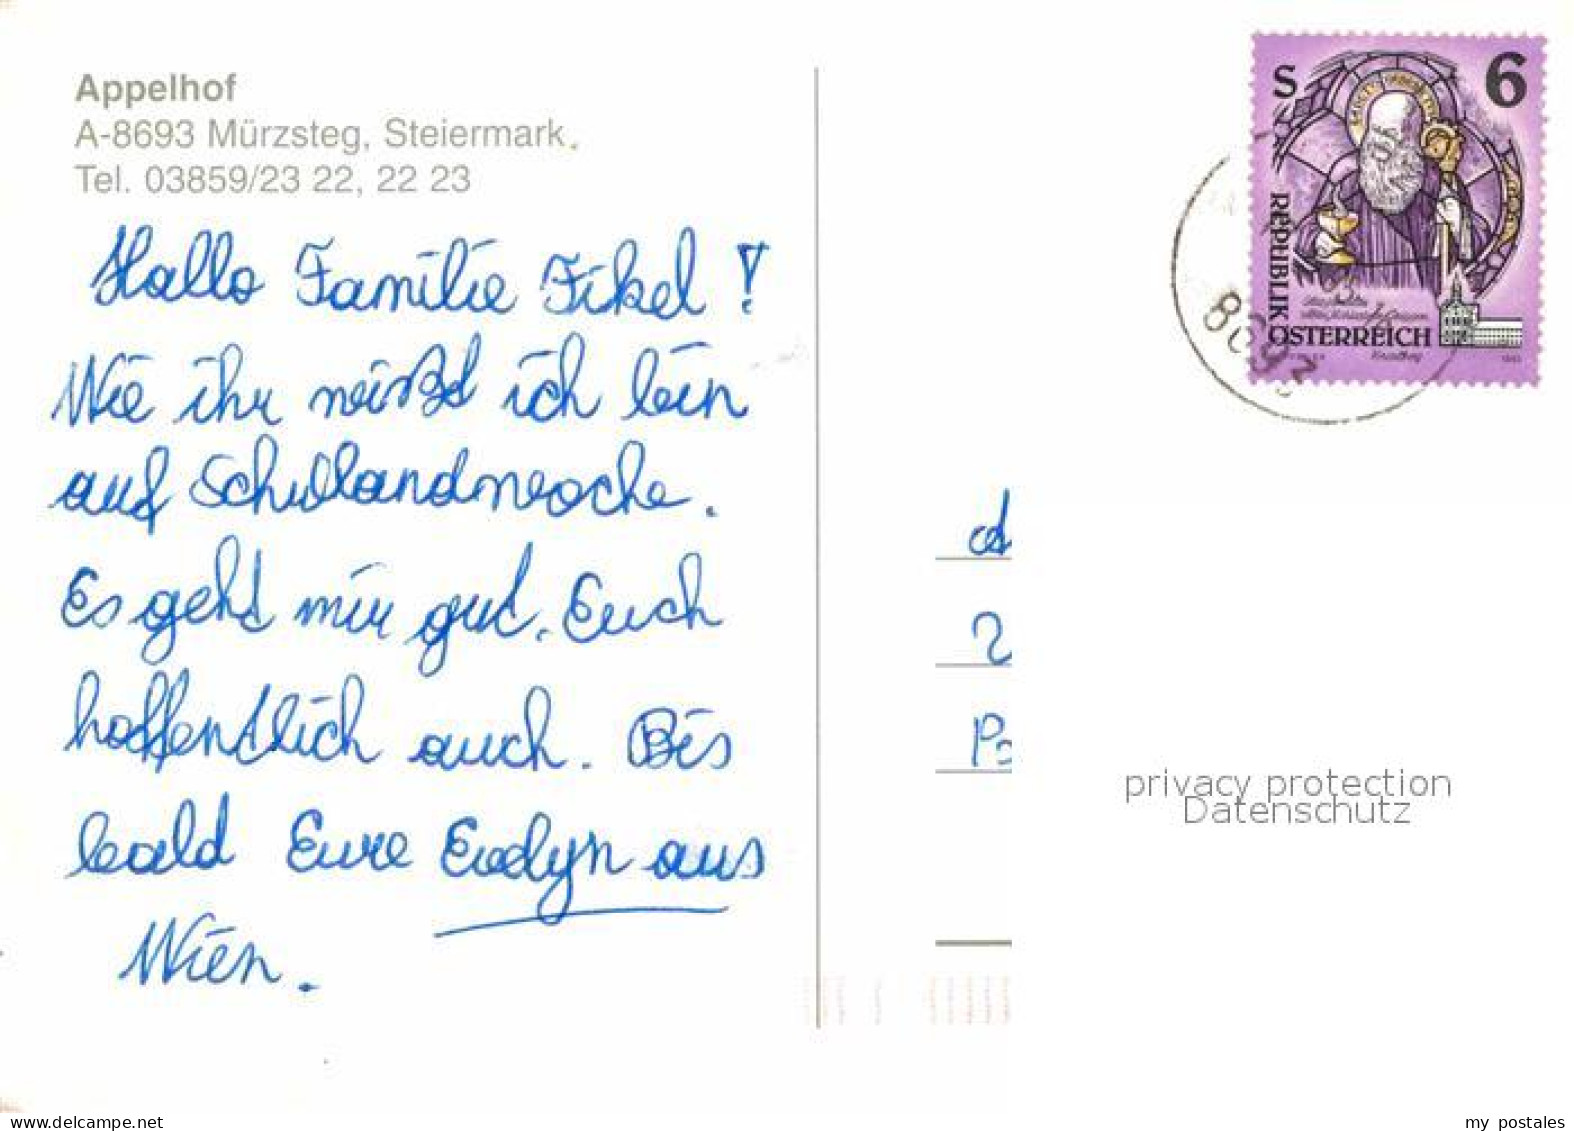 Appelhof
A-8693 Mürzsteg, Steiermark
Tel. 03859/23 22, 22 23
Hallo Familie Fikel!
Wie ihr weißt ich bin
auf Schullandwoche.
Es geht mir gut. Euch
hoffentlich auch. Bis
bald Eure Evelyn aus
Wien.
S 6
REPUBLIK
ÖSTERREICH
privacy protection
Datenschutz
www.delcampe.net
my postales